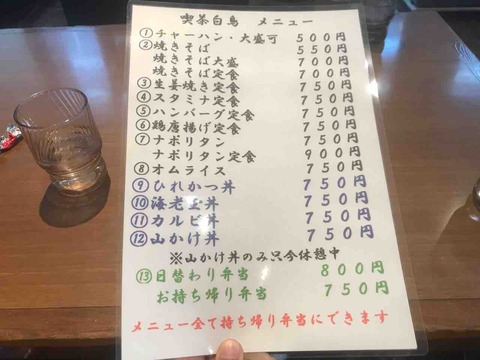 喫茶白鳥 メニュー
①チャーハン・大盛可 500円
②焼きそば 550円
焼きそば大盛 700円
焼きそば定食 700円
③生姜焼き定食 750円
④スタミナ定食 750円
⑤ハンバーグ定食 750円
⑥鶏唐揚げ定食 750円
⑦ナポリタン 750円
ナポリタン定食 900円
⑧オムライス 750円
⑨ひれかつ丼 750円
⑩海老玉丼 750円
⑪カルビ丼 750円
⑫山かけ丼 750円
※山かけ丼のみ只今休憩中
⑬日替わり弁当 800円
お持ち帰り弁当 750円
メニュー全て持ち帰り弁当にできます